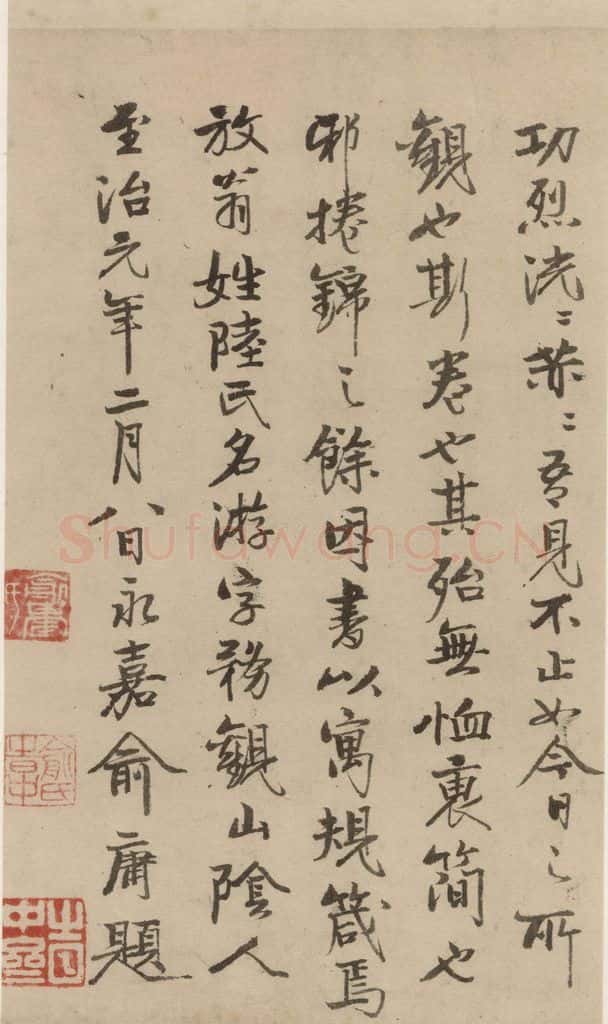 功烈洸〻赫〻吾見不止如今日之所
觀也斯卷也其殆無恤裏簡也
邪捲錦之餘因書以寓規箴焉
放翁姓陸氏名游字務觀山陰人
至治元年二月八日永嘉俞庸題
Shufawang.CN
俞氏